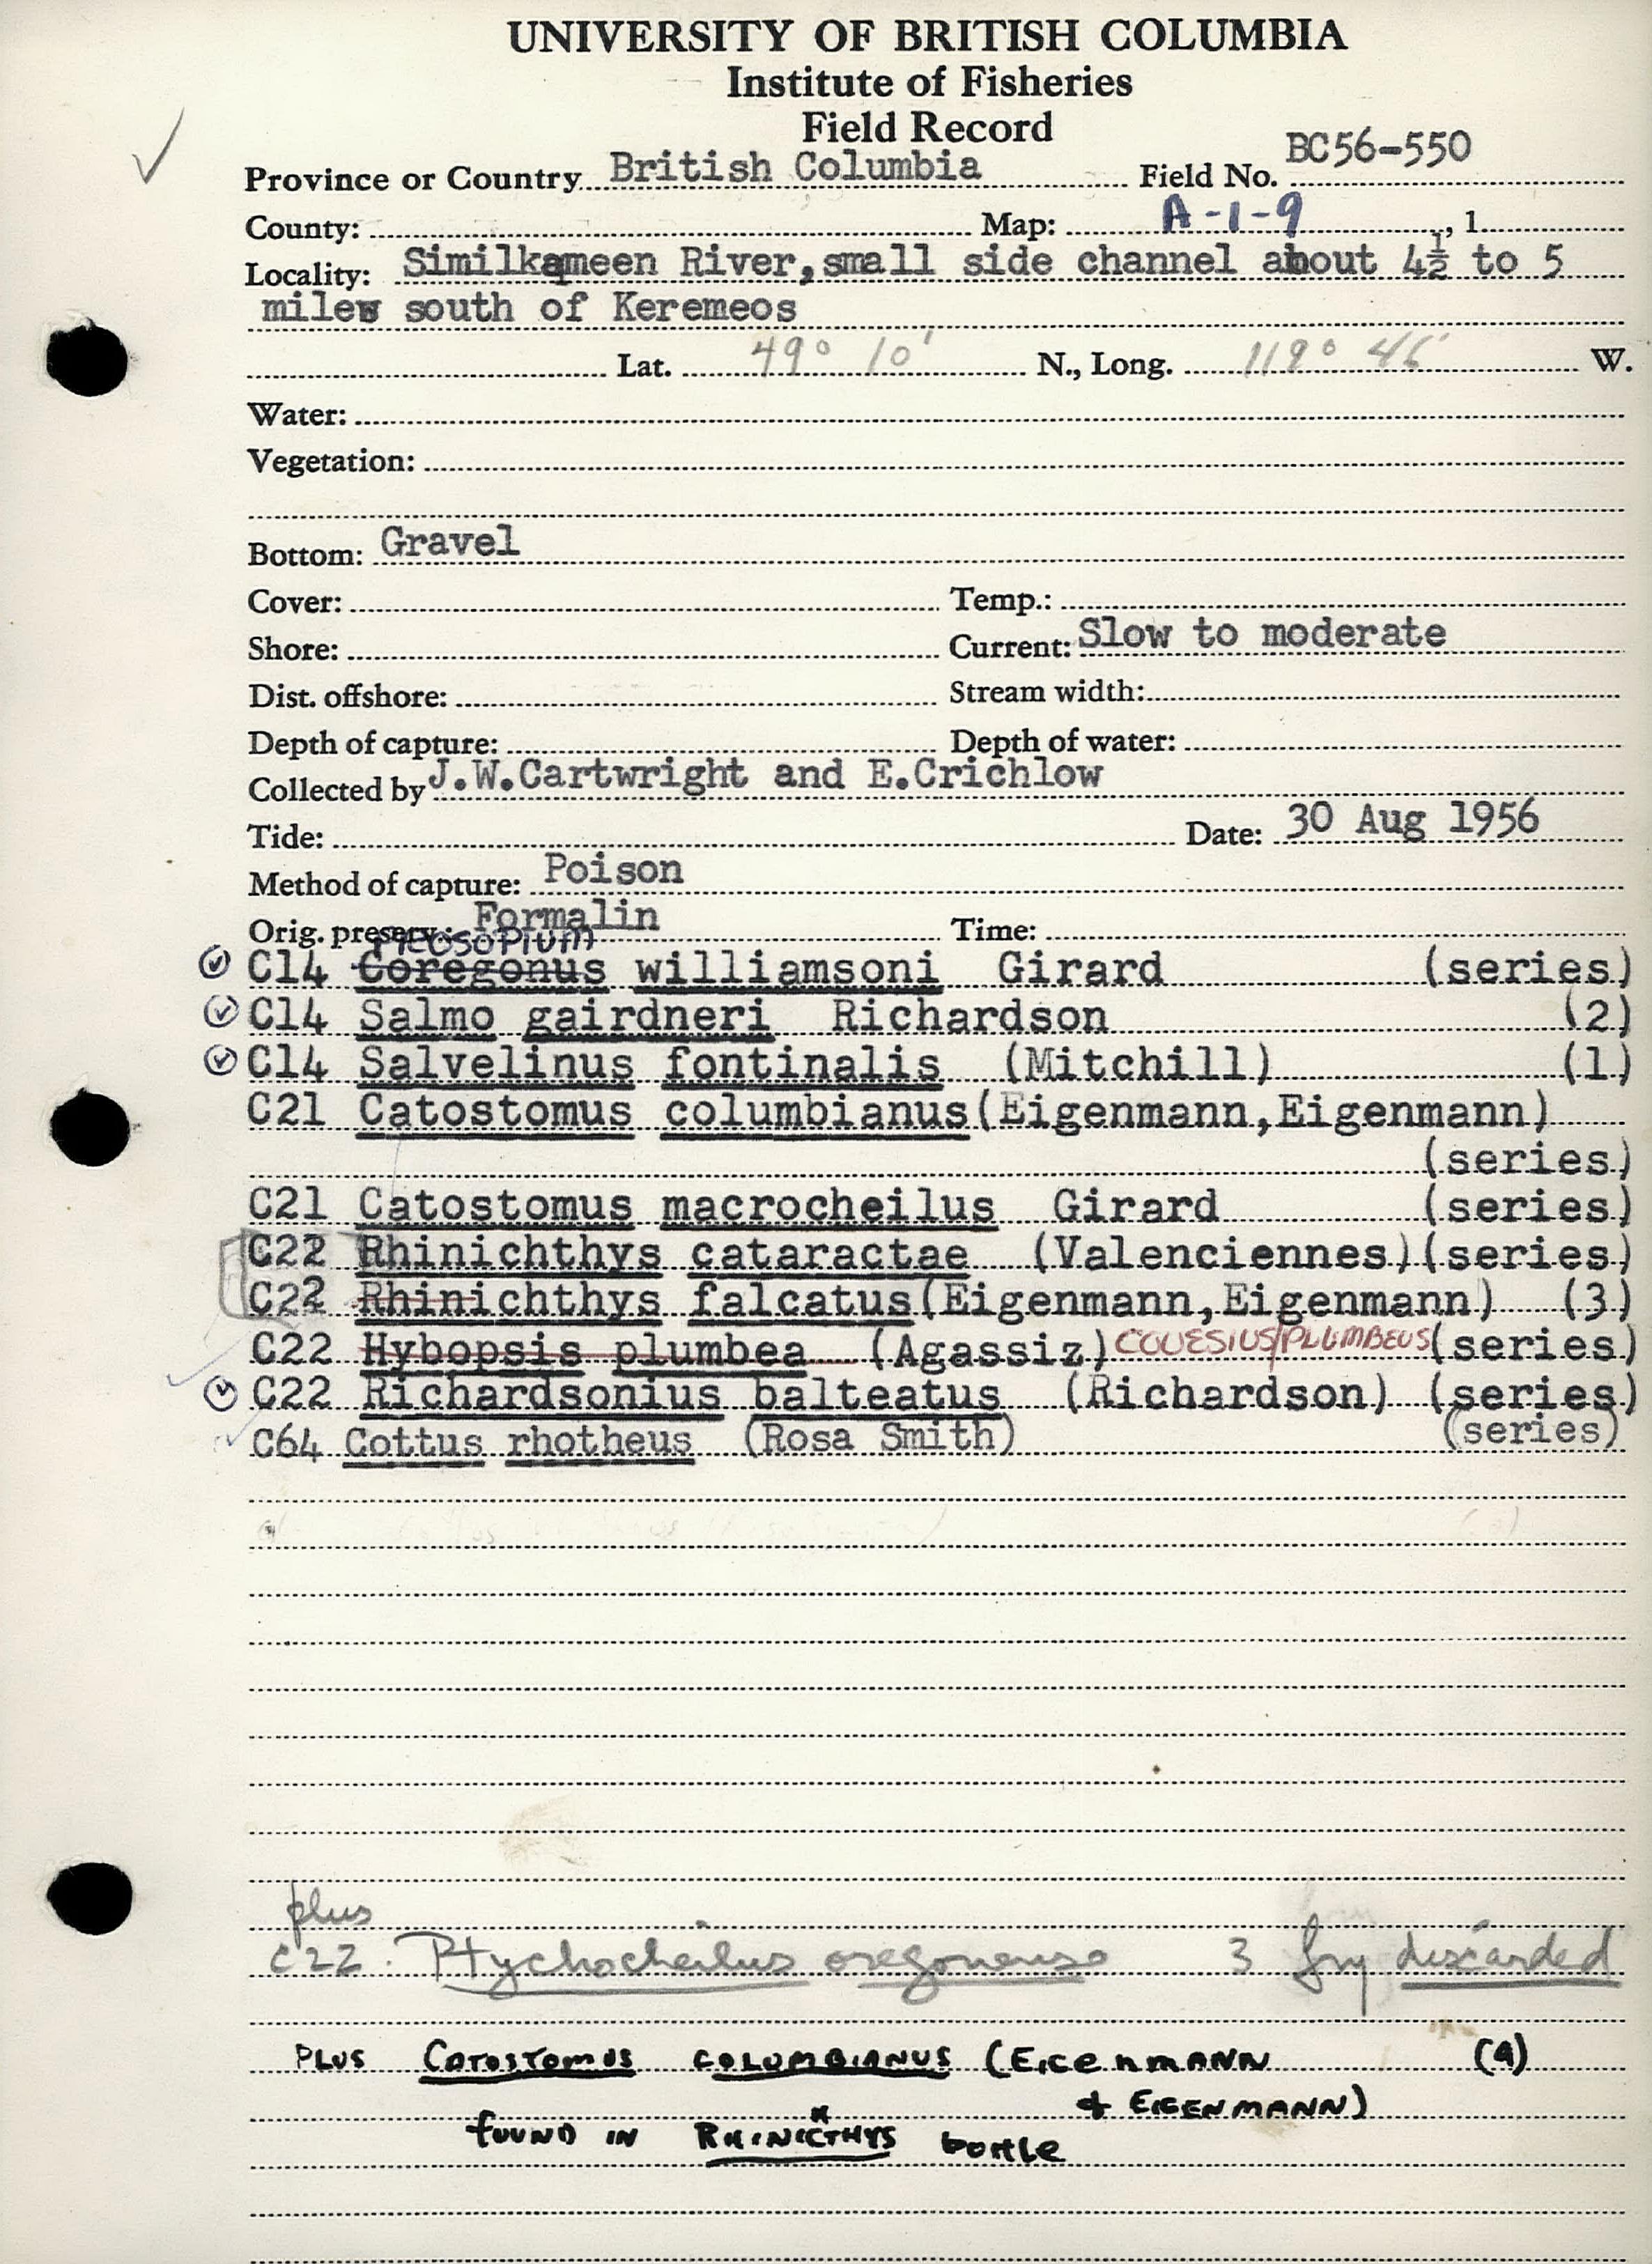 UNIVERSITY OF BRITISH COLUMBIA
Institute of Fisheries
Field Record
Province or Country British Columbia Field No. BC56-550
County: Map: A-1-9, 1.
Locality: Similkameen River, small side channel about 4½ to 5
miles south of Keremeos
Lat. 49° 10' N., Long. 119° 46' W.
Water:
Vegetation:
Bottom: Gravel
Cover: Temp.:
Shore: Current: Slow to moderate
Dist. offshore: Stream width:
Depth of capture: Depth of water:
Collected by J.W.Cartwright and E.Crichlow
Tide: Date: 30 Aug 1956
Method of capture: Poison
Orig. preserv.: Formalin Time:
PROSOPIUM
C14 Coregonus williamsoni Girard (series)
C14 Salmo gairdneri Richardson (2)
C14 Salvelinus fontinalis (Mitchill) (1)
C21 Catostomus columbianus(Eigenmann,Eigenmann)
(series)
C21 Catostomus macrocheilus Girard (series)
C22 Rhinichthys cataractae (Valenciennes)(series)
C22 Rhinichthys falcatus(Eigenmann,Eigenmann) (3)
C22 Hybopsis plumbea (Agassiz) COUESIUS/PLUMBEUS (series)
C22 Richardsonius balteatus (Richardson) (series)
C64 Cottus rhotheus (Rosa Smith) (series)
plus
C22. Ptychocheilus oregonense 3 fry discarded
PLUS CATOSTOMUS COLUMBIANUS (EIGENMANN (9)
& EIGENMANN)
FOUND IN RHINICTHYS BOTTLE